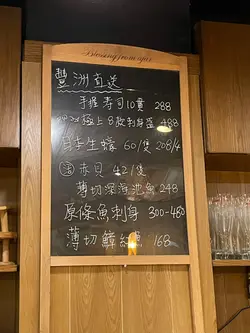 豐洲直送
手握壽司10貫 288
極上8款刺身盛 488
日本生蠔 60/隻 208/4
赤貝 42/隻
薄切深海池魚 248
原條魚刺身 300-480
薄切 168